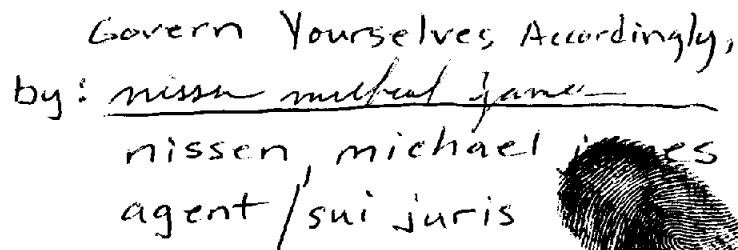 Govern Yourselves Accordingly,
by: nissen michael james
nissen, michael james
agent/sui juris